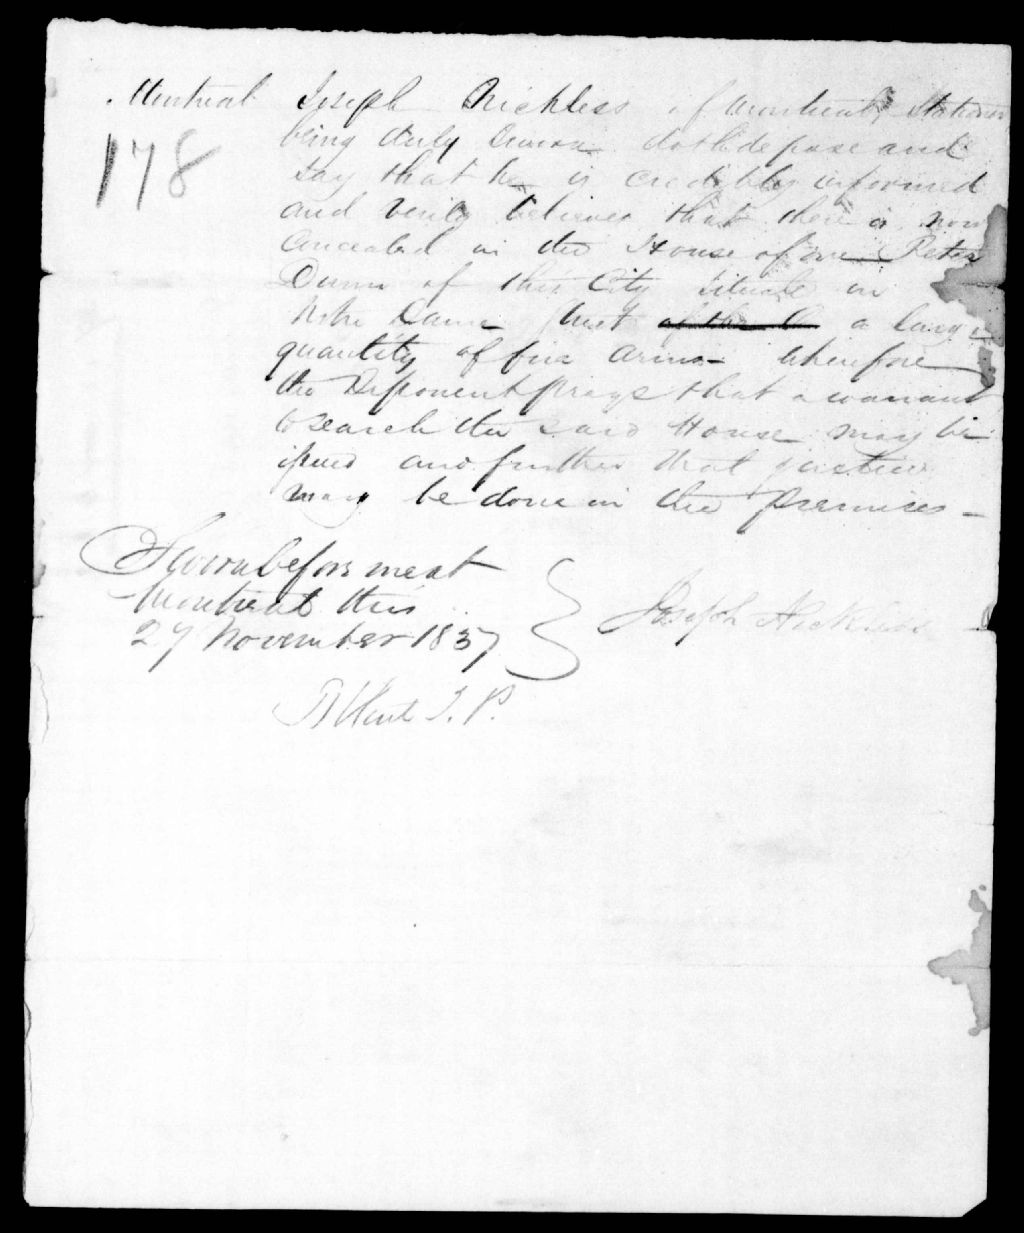 Montreal Joseph Nickless of Montreal, Stationer
178
being duly sworn doth depose and
say that he is credibly informed
and verily believes that there is now
concealed in the House of one Peter
Dunn of this City situate in
Notre Dame Street a large
quantity of fire arms wherefore
the Deponent prays that a warrant
to search the said House may be
issued and further that justice
may be done in the premises –
Sworn before me at
Montreal this
27 November 1837
Joseph Nickless
J. P.